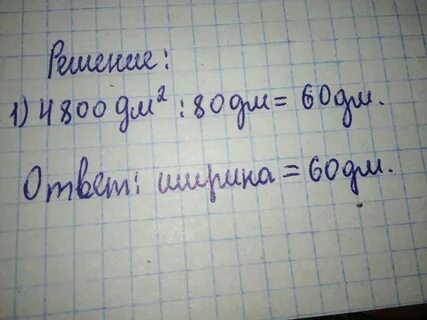 Решение:
1) 4800 дм² : 80 дм = 60 дм.
Ответ: ширина = 60 дм.